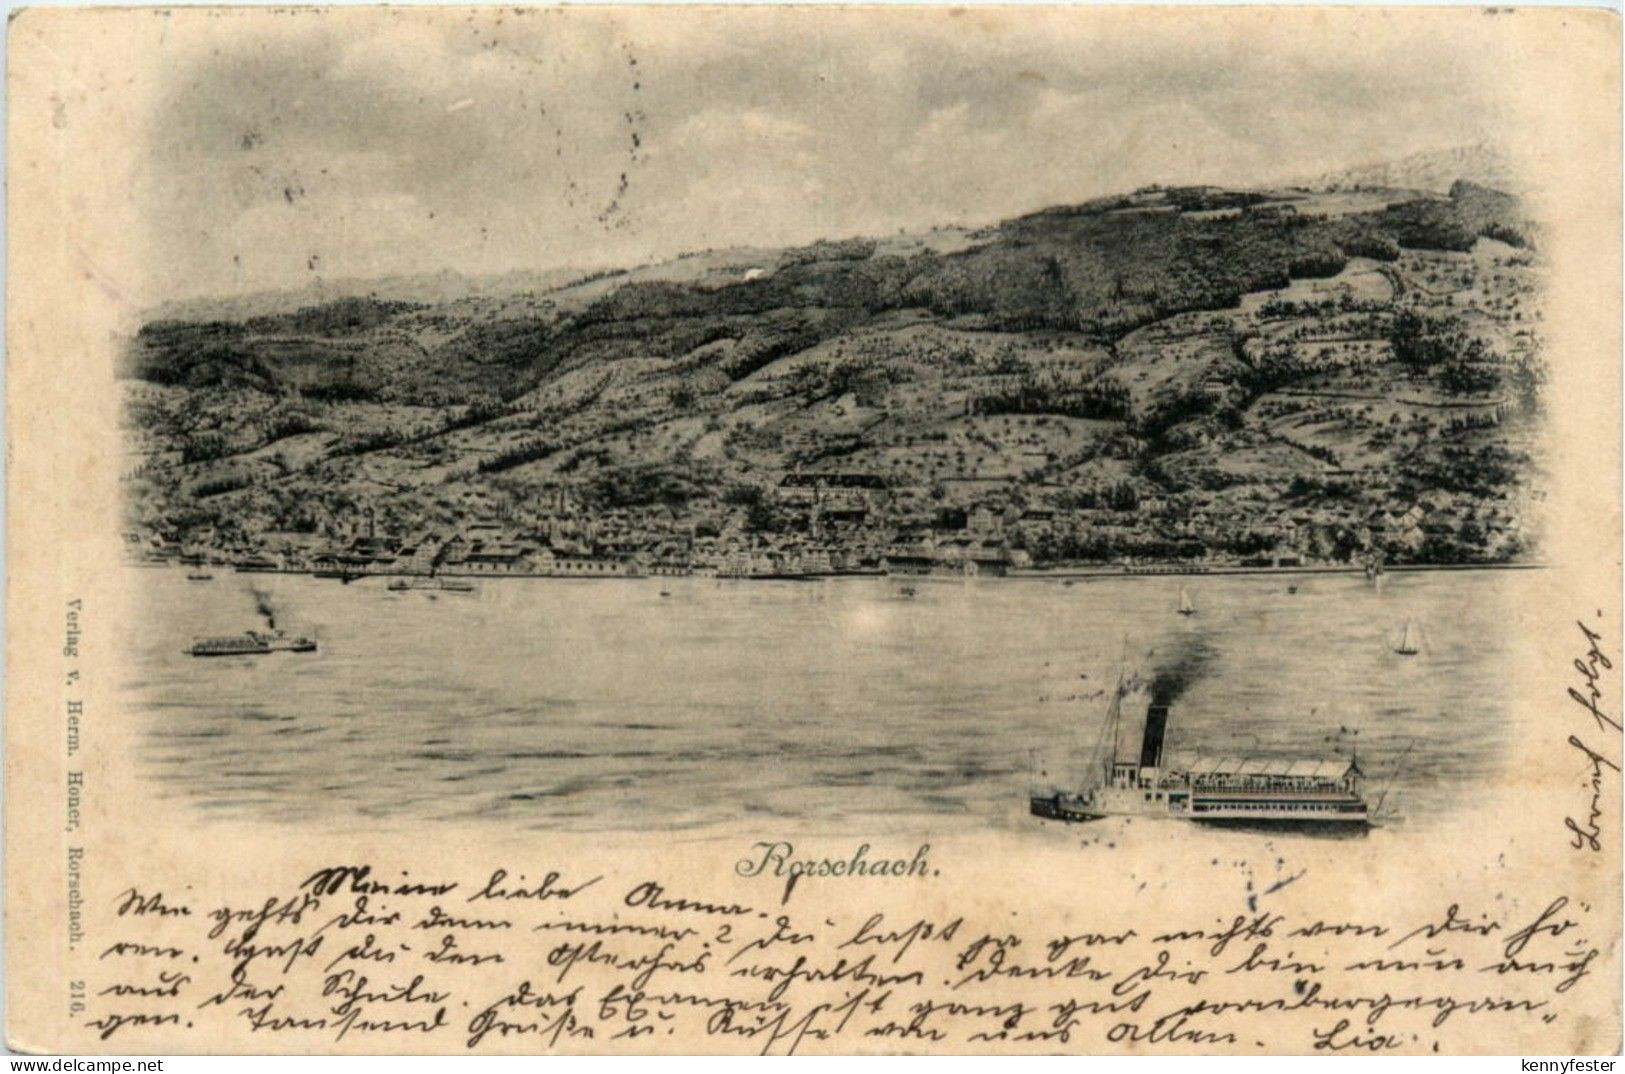 Rorschach.
Meine liebe Anna.
Wie gehts Dir denn immer? Du laßt ja gar nichts von Dir hö-
ren. Hast du den Osterhas erhalten. Denke Dir bin nun auch
aus der Schule. Das Examen ist ganz gut vorübergegan-
gen. Tausend Grüße u. Küsse von uns Allen. Lia.
Brief folgt.
Verlag v. Herm. Honer, Rorschach. 216.
www.delcampe.net
kennyfester